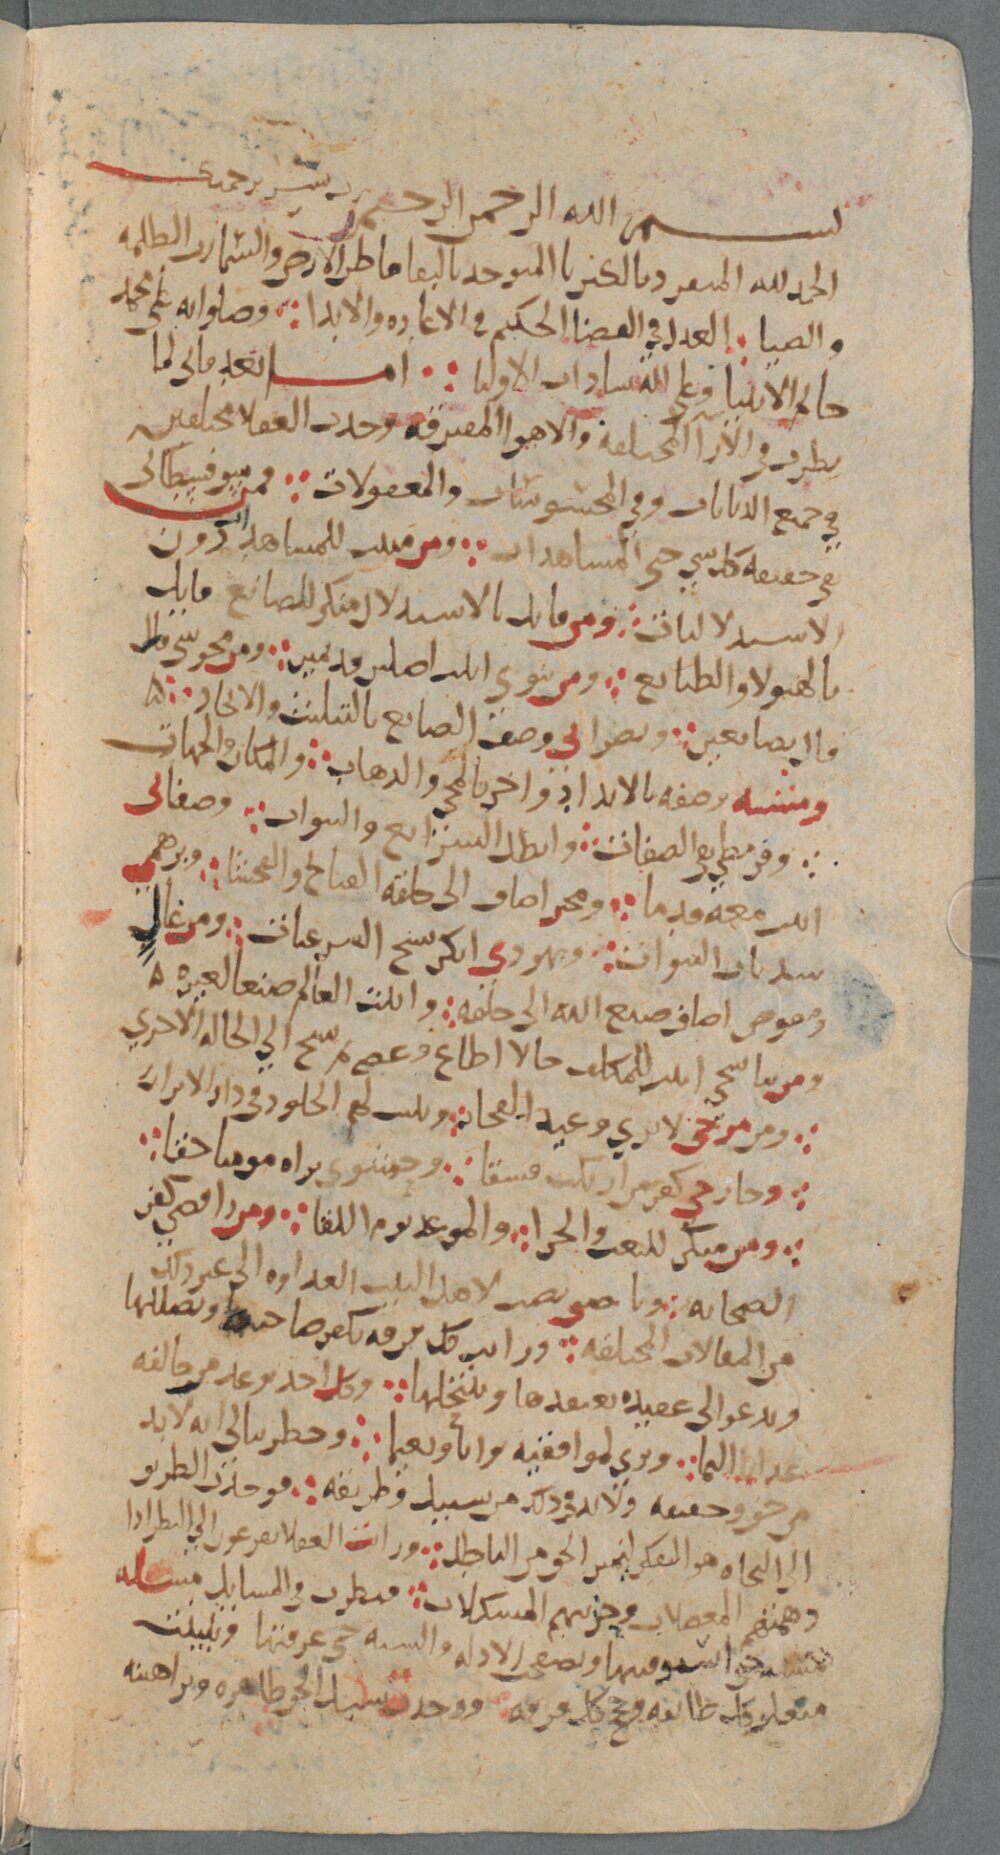 رب يسر برحمتك
بسم الله الرحمن الرحيم
الحمد لله المتفرد بالكبريا المتوحد بالبقا فاطر الارض والسما رب الظلمه
والضيا العدل في القضا الحكيم في الاعاده والابدا وصلواته على محمد
خاتم الانبيا وعلى اله سادات الاوليا اما بعد فاني لما
نظرت في الارا المختلفه والاهوا المفترقه وجدت العقلا مختلفين
في جميع الديانات وفي المحسوسات والمعقولات فمن سوفسطائي
نفى حقيقه كل شي حتى المشاهدات ومن مثبت للمشاهدات دون
الاستدلاليات ومن قايل بالاستدلال منكر للصانع قايل
بالهيولا والطبايع ومن ثنوي اثبت اصلين قديمين ومن مجوسي قال
بصانعين ونصراني وصف الصانع بالتثليث والاتحاد
ومشبه وصفه بالاعضا واخر بالمجي والذهاب والمكان والجهات
وقرمطي نفى الصفات وابطل الشرايع والنبوات وصفاتي
اثبت معه قدما ومجبر اضاف الى خالقه القبايح والفحشا وبرهمي
النبوات ويهودي انكر نسخ الشرعيات ومن غال
ومفوض اضاف صنع الله الى خلقه واثبت العالم صنعا لغيره
ومن تناسخي اثبت للمكلف حالا اطاع وعصى ثم نسخ الى الحاله الاخرى
ومن مرجي لا يرى وعيد الفجار ويثبت لهم الخلود في دار الابرار
وخارجي كفر من ارتكب فسقا وحشوي يراه مومنا حقا
ومن منكر للبعث والجزا والموعد يوم اللقا ومن رافضي كفر
الصحابه وناصبي نصب لاهل البيت العداوه الى غير ذلك
من المقالات المختلفه ورايت كل فرقه تكفر صاحبتها وتضللها
وتدعو الى عقيده تعتقدها وتنتحلها وكل احد يوعد من خالفه
عذابا اليما ويرى لموافقيه ثوابا ونعيما وخطر ببالي انه لابد
من حق وحقيقه ولابد في ذلك من سبيل وطريقه فوجدت الطريق
الى النجاه هو التفكر ليميز الحق من الباطل ورايت العقلا يفزعون الى النظر اذا
دهمتهم المعضلات وحزبهم المشكلات فنظرت في المسايل مسئله
مسئله حتى استوفيتها وتصفحت الادله والشبه حتى عرفتها وتبينت
كل طايفه وحجج كل فرقه ووجدت سبيل الحق ظاهره وبراهينه